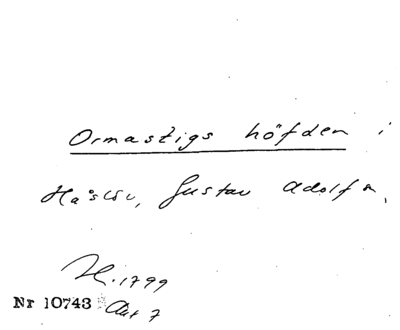 Ormastigs höfden i
Håslöv, Gustav Adolf s.
H. 1799
Nr 10743 Akt 7